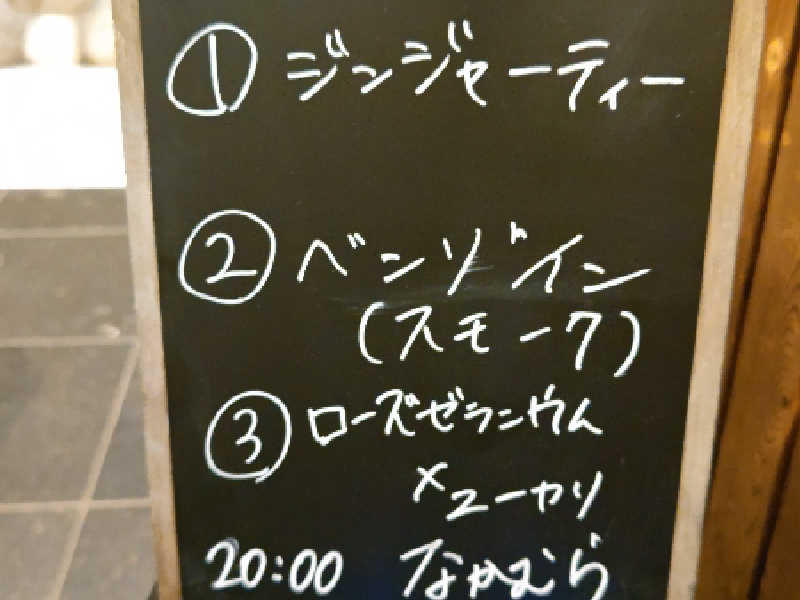 ① ジンジャーティー
② ベンゾイン
(スモーク)
③ ローズゼラニウム
×ユーカリ
20:00 なかむら